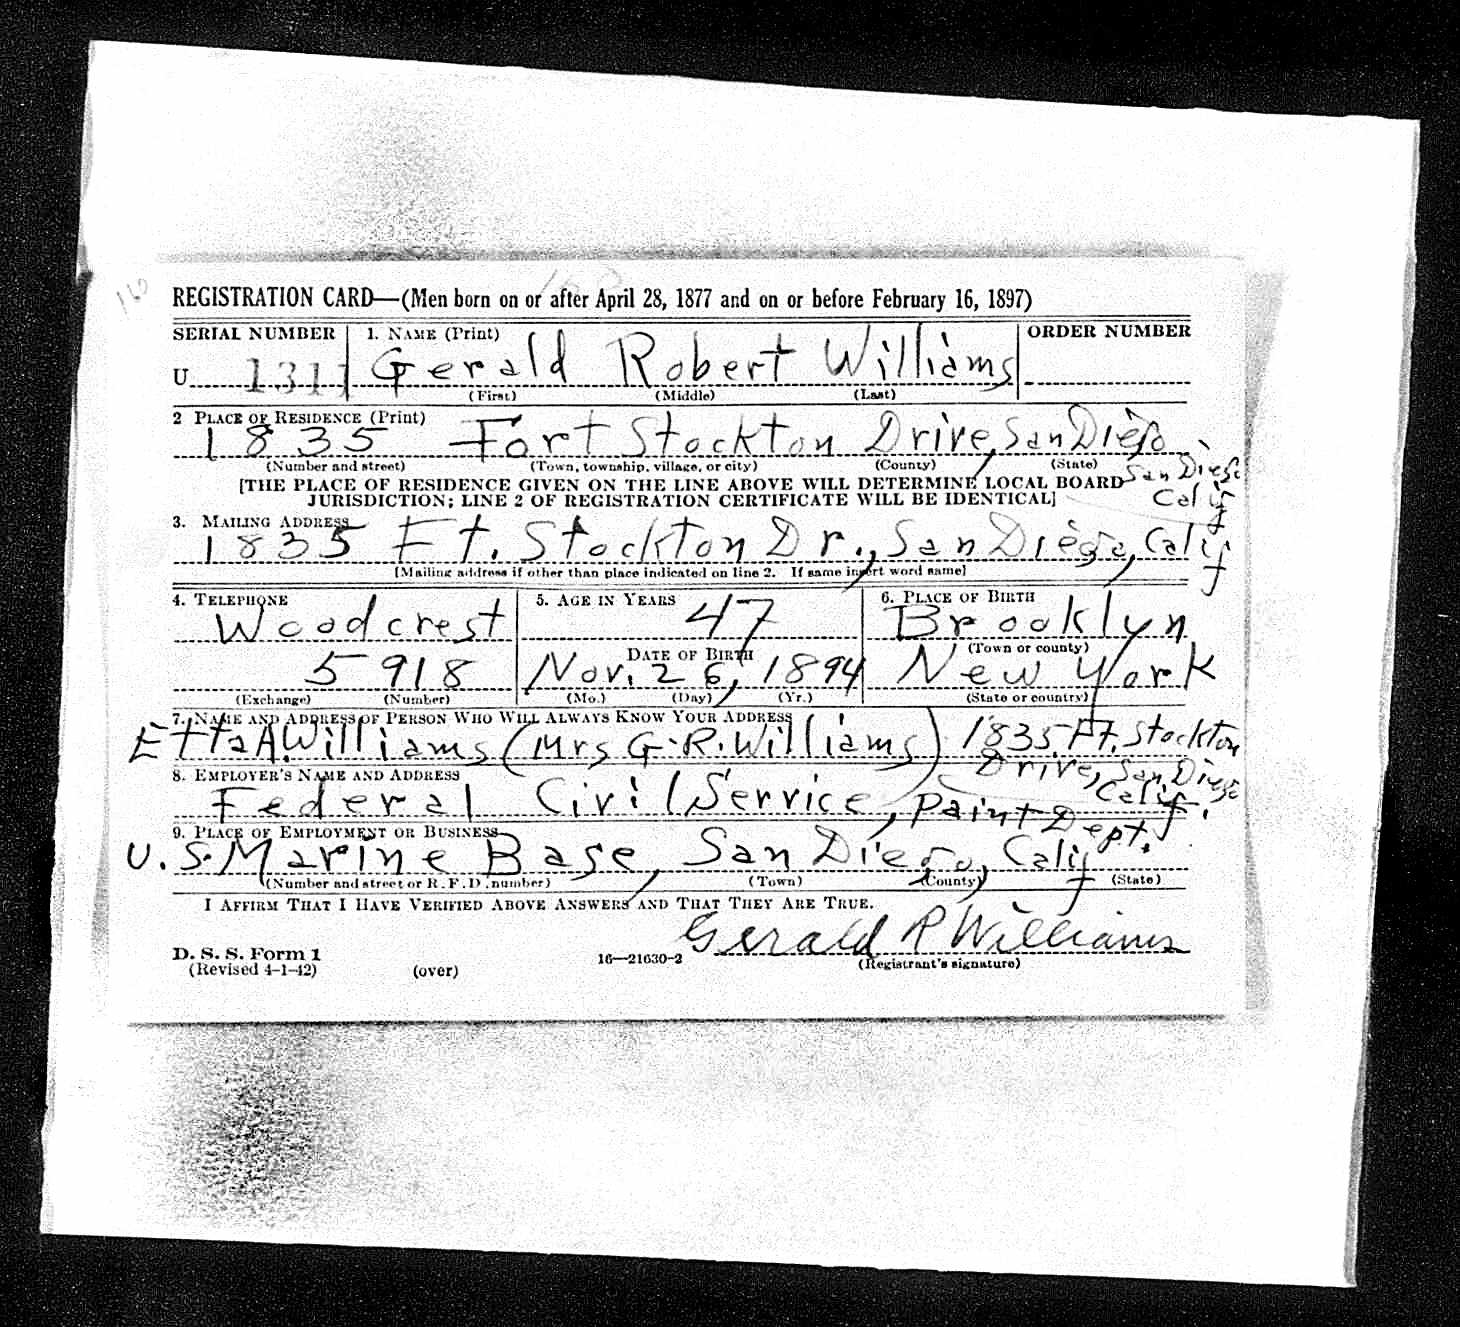 160
REGISTRATION CARD—(Men born on or after April 28, 1877 and on or before February 16, 1897)
SERIAL NUMBER 1. NAME (Print) ORDER NUMBER
U 1311 Gerald Robert Williams
(First) (Middle) (Last)
2 PLACE OF RESIDENCE (Print)
1835 Fort Stockton Drive, San Diego,
(Number and street) (Town, township, village, or city) (County) (State)
San Diego
Calif
[THE PLACE OF RESIDENCE GIVEN ON THE LINE ABOVE WILL DETERMINE LOCAL BOARD
JURISDICTION; LINE 2 OF REGISTRATION CERTIFICATE WILL BE IDENTICAL]
3. MAILING ADDRESS
1835 Ft. Stockton Dr., San Diego, Calif
[Mailing address if other than place indicated on line 2. If same insert word same]
4. TELEPHONE 5. AGE IN YEARS 6. PLACE OF BIRTH
Woodcrest 47 Brooklyn
DATE OF BIRTH (Town or county)
5918 Nov. 26, 1894 New York
(Exchange) (Number) (Mo.) (Day) (Yr.) (State or country)
7. NAME AND ADDRESS OF PERSON WHO WILL ALWAYS KNOW YOUR ADDRESS
Etta A. Williams (Mrs G. R. Williams) 1835 Ft. Stockton
Drive, San Diego
Calif.
8. EMPLOYER'S NAME AND ADDRESS
Federal Civil Service, Paint Dept.
9. PLACE OF EMPLOYMENT OR BUSINESS
U.S. Marine Base, San Diego, Calif
(Number and street or R. F. D. number) (Town) (County) (State)
I AFFIRM THAT I HAVE VERIFIED ABOVE ANSWERS AND THAT THEY ARE TRUE.
Gerald R Williams
D. S. S. Form 1
(Revised 4-1-42) (over) 16—21630-2 (Registrant's signature)